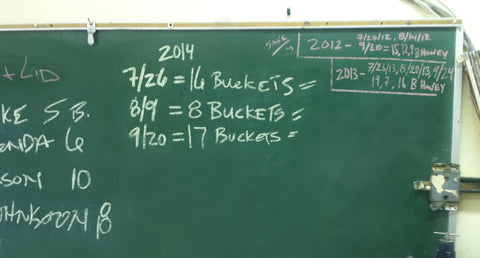 2014
7/26 = 16 BUCKETS =
8/9 = 8 BUCKETS =
9/20 = 17 BUCKETS =
2012 - 7/20/12, 8/14/12
9/20 = 15, 13, 9 B HONEY
2013 - 7/26/13, 8/20/13, 9/24
19, 7, 16 B HONEY
+ LID
KE 5 B.
NDA 6
SON 10
HNSON 8